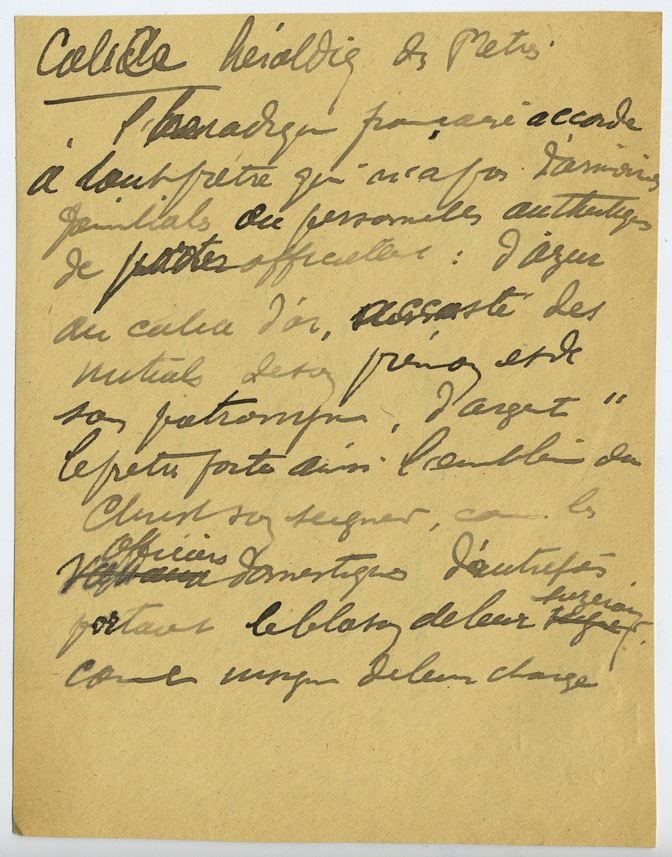 Calice héraldiq des Pretres
L'heraldique française accorde
à tout prêtre qui n'a pas d'armoiries
familiales ou personnelles authentiques
de officielles : d'azur
au calice d'or, accosté des
initiales de son prénom et de
son patronyme, d'argent "
le pretre porte ainsi l'emblème du
Christ son seigneur, comme les
officiers
domestiques d'autrefois
suzerain
portaient le blason de leur
comme insigne de leur charge